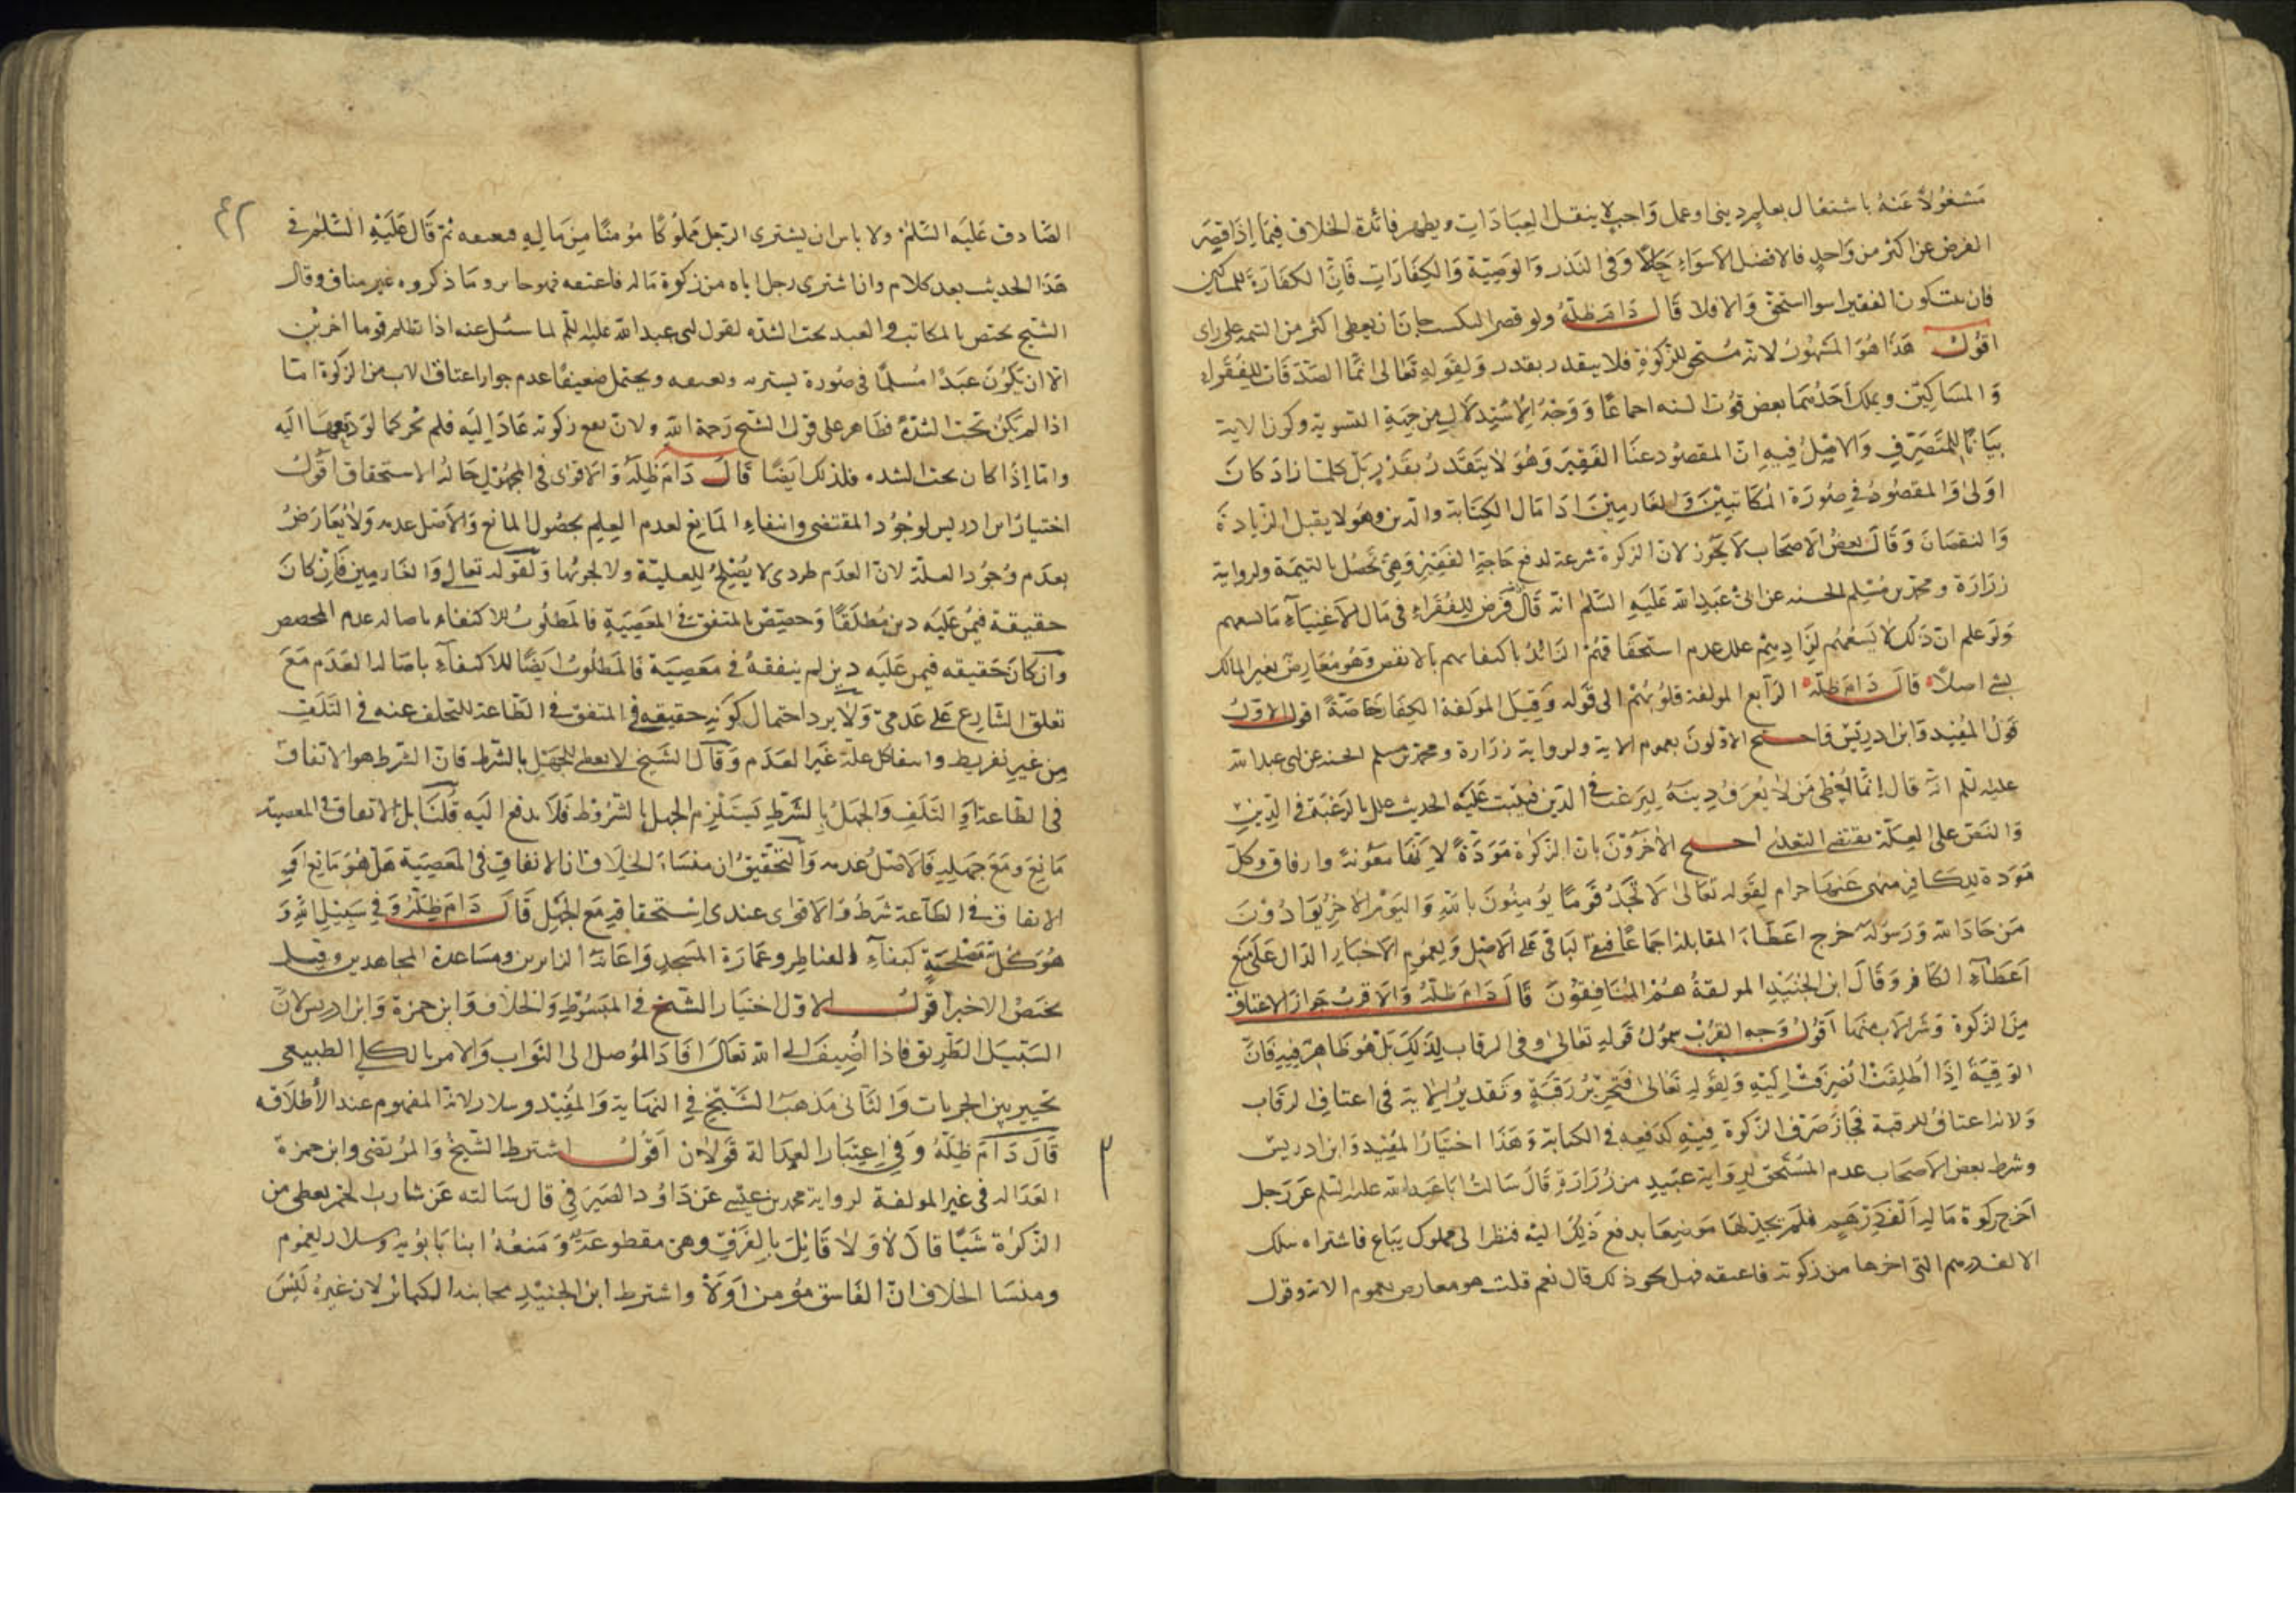 مشغولا عنه باشتغال بعلم ديني او عمل واجب لا بنفل العبادات ويظهر فائدة الخلاف فيما اذا قصر
الفرض عن اكثر من واحد فالافضل الاسواء حالا وفي النذر والوصية والكفارات فان الكفارة للمساكين
فان الفقير اسوا استحق والا فلا قال دام ظله ولو قصر التكسب جاز ان يعطى اكثر من التتمة على راى
اقول هذا هو المشهور لانه مستحق للزكوة فلا يتقدر بقدر ولقوله تعالى انما الصدقات للفقراء
والمساكين ويملك احدهما بعض قوت السنه اجماعا ووجه الاستدلال من جهة التسوية وكون الاية
بيانا للمتصرف والاصل فيه ان المقصود عنا الفقير وهو لا يتقدر بقدر بل كلما زاد كان
اولى والمقصود في صورة المكاتبين والغارمين ادا مال الكتابة والدين وهو لا يقبل الزيادة
والنقصان وقال بعض الاصحاب لا يجوز لان الزكوة شرعت لدفع حاجة الفقير وهي تحصل بالتتمة ولرواية
زرارة ومحمد بن مسلم الحسنه عن ابي عبد الله عليه السلم انه قال فرض للفقراء في مال الاغنياء ما يسعهم
ولو علم ان ذلك لا يسعهم لزادهم علل عدم استحقاقهم الزائد باكتفائهم بالانقص وهو معارض بغير المالك
لشئ اصلا قال دام ظله الرابع المولفة قلوبهم الى قوله وقيل المولفة الكفار خاصة اقول الاول
قول المفيد وابن ادريس واحتج الاولون بعموم الاية ولرواية زرارة ومحمد بن مسلم الحسنه عن ابي عبد الله
عليه السلم انه قال انما يعطى من لا يعرف دينه ليرغب في الدين فيثبت عليه الحديث علل بالرغبة في الدين
والنص على العلة يقتضي التعدي احتج الاخرون بان الزكوة مودة لانها معونة وارفاق وكل
مودة للكافر منهى عنها حرام لقوله تعالى لا تجد قوما يومنون بالله واليوم الاخر يوادون
من حاد الله ورسوله خرج اعطاء المقابلة اجماعا فيبقى الباقي على الاصل ولعموم الاخبار الدال على منع
اعطاء الكافر وقال ابن الجنيد المولفة هم المنافقون قال دام ظله والاقرب جواز الاعتاق
من الزكوة وشراء الاب منها اقول وجه القرب شمول قوله تعالى وفي الرقاب لذلك بل هو ظاهر فيه فان
الرقبة اذا اطلقت انصرفت اليه ولقوله تعالى فتحرير رقبة وتقدير الاية في اعتاق الرقاب
ولانه اعتاق للرقبة فجاز صرف الزكوة فيه كدفعه في الكتابة وهذا اختيار المفيد وابن ادريس
وشرط بعض الاصحاب عدم المستحق لرواية عبيد من زرارة قال سالت ابا عبد الله عليه السلم عن رجل
اخرج زكوة ماله الف درهم فلم يجد لها موضعا يدفع ذلك اليه فنظر الى مملوك يباع فاشتراه بتلك
الالف درهم التي اخرجها من زكوته فاعتقه فهل يجوز ذلك قال نعم قلت هو معارض بعموم الاية وقول
٤٢
الصادق عليه السلم ولا باس ان يشترى الرجل مملوكا مؤمنا من ماله فيعتقه ثم قال عليه السلم في
هذا الحديث بعد كلام وان اشترى رجل اباه من زكوة ماله فاعتقه فهو جائز وما ذكروه غير مناف وقال
الشيخ يختص بالمكاتب والعبد تحت الشده لقول ابي عبد الله عليه السلم لما سئل عنه اذا نظلم قوما اخرين
الا ان يكون عبدا مسلما في ضرورة يشتريه ويعتقه ويحتمل ضعيفا عدم جواز اعتاق الاب من الزكوة اما
اذا لم يكن تحت الشدة فظاهر على قول الشيخ رحمة الله ولان نفع زكوته عاد اليه فلم تجز كما لو دفعها اليه
واما اذا كان تحت الشده فلذلك ايضا قال دام ظله والاقوى في المجهول حاله الاستحقاق اقول
اختيار ابن ادريس لوجود المقتضى وانتفاء المانع لعدم العلم بحصول المانع والاصل عدمه ولا يعارض
بعدم وجود العلة لان العدم طردى لا يصلح للعلية ولا لجزئها ولقوله تعالى والغارمين فان كان
حقيقة فيمن عليه دين مطلقا وخصص بالمنفق في المعصية فالمطلوب للاكتفاء باصالة عدم المخصص
وان كان حقيقه فيمن عليه دين لم ينفقه في معصية فالمطلوب ايضا للاكتفاء باصالة العدم مع
تعلق الشارع على عدمي ولا يرد احتمال كونه حقيقه في المنفق في الطاعة للتخلف عنه في التلف
من غير تفريط وانتفا كل علة غير العدم وقال الشيخ لا يعطى للجهل بالشرط فان الشرط هو الانفاق
في الطاعة او التلف والجهل بالشرط يستلزم الجهل بالمشروط فلا يدفع اليه قلنا بل الانفاق في المعصية
مانع ومع جهله فالاصل عدمه والتحقيق ان منشاء الخلاف ان الانفاق في المعصية هل هو مانع او
الانفاق في الطاعة شرط والاقوى عندى استحقاقه مع الجهل قال دام ظله وفي سبيل الله و
هو كل مصلحة كبناء القناطر وعمارة المسجد واعانة الزائرين ومساعدة المجاهدين وقيل
يختص الاخير اقول الاول اختيار الشيخ في المبسوط والخلاف وابن حمزة وابن ادريس لان
السبيل الطريق فاذا اضيف الى الله تعالى افاد الموصل الى الثواب والامر بالكلي الطبيعي
تخيير بين الجزيات والثاني مذهب الشيخ في النهاية والمفيد وسلار لانه المفهوم عند الاطلاق
قال دام ظله وفي اعتبار العدالة قولان اقول اشترط الشيخ والمرتضى وابن حمزة
العدالة في غير المولفة لرواية محمد بن عيسى عن داود الصيرفي قال سالته عن شارب الخمر يعطى من
الزكوة شيئا قال لا ولا قائل بالفرق وهي مقطوعة ومنعه ابنا بابويه وسلار لعموم
ومنشا الخلاف ان الفاسق مؤمن او لا واشترط ابن الجنيد مجانبة الكبائر لان غيره ليس